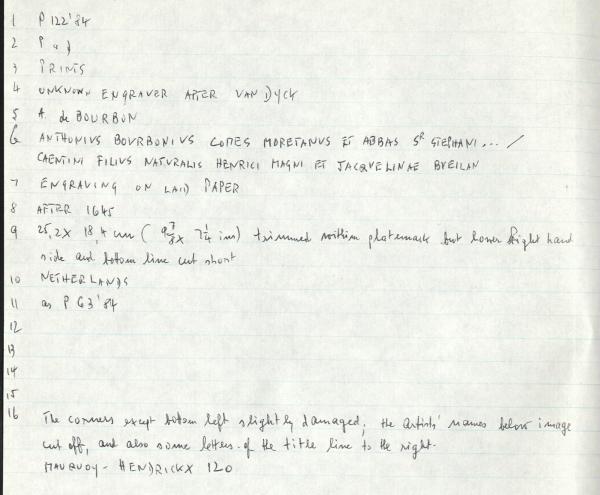 1 P 122'84
2 P
3 PRINTS
4 UNKNOWN ENGRAVER AFTER VAN DYCK
5 A. de BOURBON
6 ANTHONIUS BOVRBONIVS COMES MORETANUS ET ABBAS Sti STEPHANI... /
CAENTINI FILIVS NATURALIS HENRICI MAGNI ET JACQUELINAE BVEILAN
7 ENGRAVING ON LAID PAPER
8 AFTER 1645
9 25,2 X 18,4 cm ( 9 7/8 X 7 1/4 ins) trimmed within platemark but lower right hand
side and bottom line cut short
10 NETHERLANDS
11 as P 63'84
12
13
14
15
16 The corners except bottom left slightly damaged; the artists' names below image
cut off, and also some letters of the title line to the right.
MAUQUOY - HENDRICKX 120